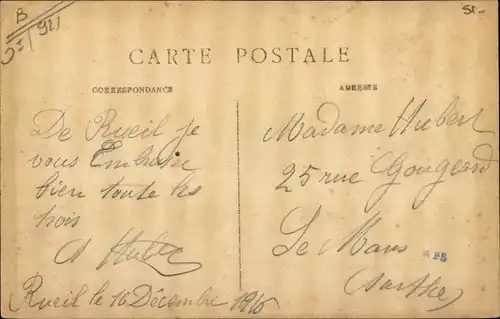 B
921
St-
CARTE POSTALE
CORRESPONDANCE
ADRESSE
De Rueil je
vous Embrasse
bien toute les
trois
A Huber
Rueil le 16 Décembre 1915
Madame Hubert
25 rue Gougeard
Le Mans
(Sarthe)